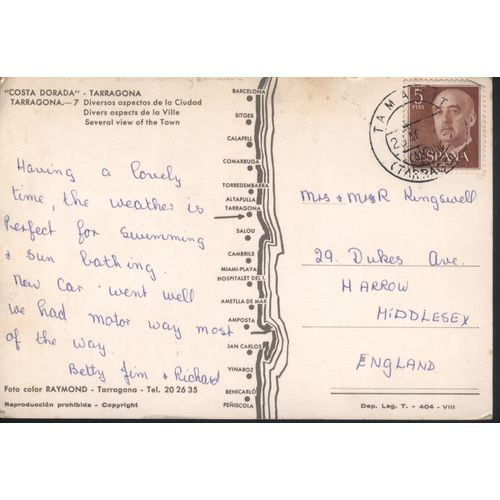 "COSTA DORADA" - TARRAGONA
TARRAGONA.—7 Diversos aspectos de la Ciudad
Divers aspects de la Ville
Several view of the Town
Having a lovely
time, the weather is
Perfect for swimming
& sun bathing.
New Car went well
we had motor way most
of the way.
Betty Jim & Richard
Foto color RAYMOND - Tarragona - Tel. 20 26 35
Reproducción prohibida - Copyright
BARCELONA
SITGES
CALAFELL
COMARRUGA
TORREDEMBARRA
ALTAFULLA
TARRAGONA
SALOU
CAMBRILS
MIAMI-PLAYA
HOSPITALET DEL I.
AMETLLA DE MAR
AMPOSTA
SAN CARLOS
VINAROZ
BENICARLÓ
PEÑISCOLA
5
PTAS
ESPAÑA
(TARRAG
Mrs & Mrs R Kingswell
29. Dukes Ave.
HARROW
MIDDLESEX
ENGLAND
Dep. Leg. T. - 404 - VIII